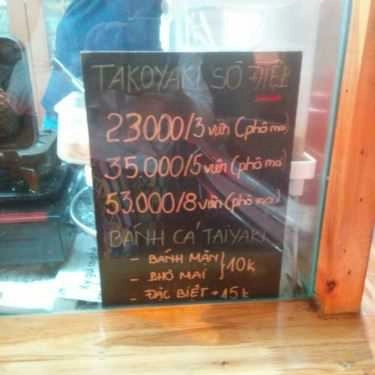 TAKOYAKI SÒ ĐIỆP
23000/3 viên (phô mai
35.000/5 viên (phô mai
53.000/8 viên (phô mai
BÁNH CÁ TAIYAKI
- BÁNH MẶN } 10k
- PHÔ MAI
- ĐẶC BIỆT + 15k